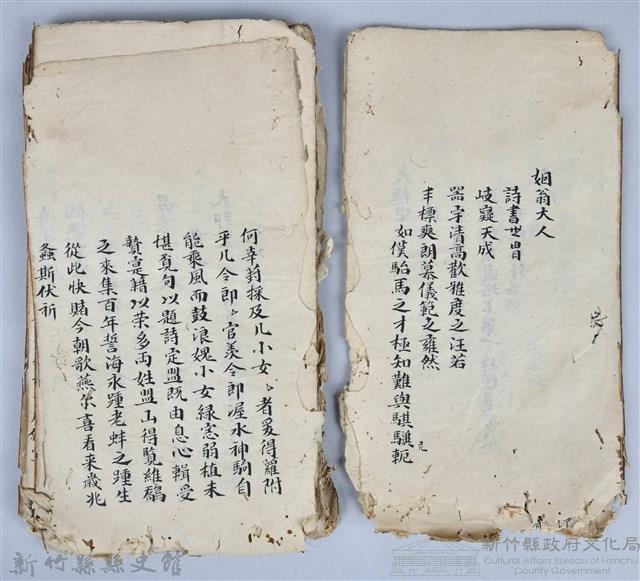 姻翁大人
詩書世冑
岐嶷天成
器宇清高歡雅度之汪若
丰標爽朗慕儀範之雍然
如僕駘馬之才極知難與騏驥軛
何幸葑採及儿小女〻者爰得蘿附
乎儿令郎〻官羨令郎渥水神駒自
能乘風而鼓浪媿小女綠窓弱植未
堪覓句以題詩定盟既由息心輯受
贄寔藉以荣多両姓盟山得覧維鵲
之來集百年誓海永踵老蚌之踵生
從此快賭今朝歌燕尔喜看来歲兆
螽斯伏祈
新竹縣縣史館
新竹縣政府文化局
Cultural Affairs Bureau of Hsinchu
County Government